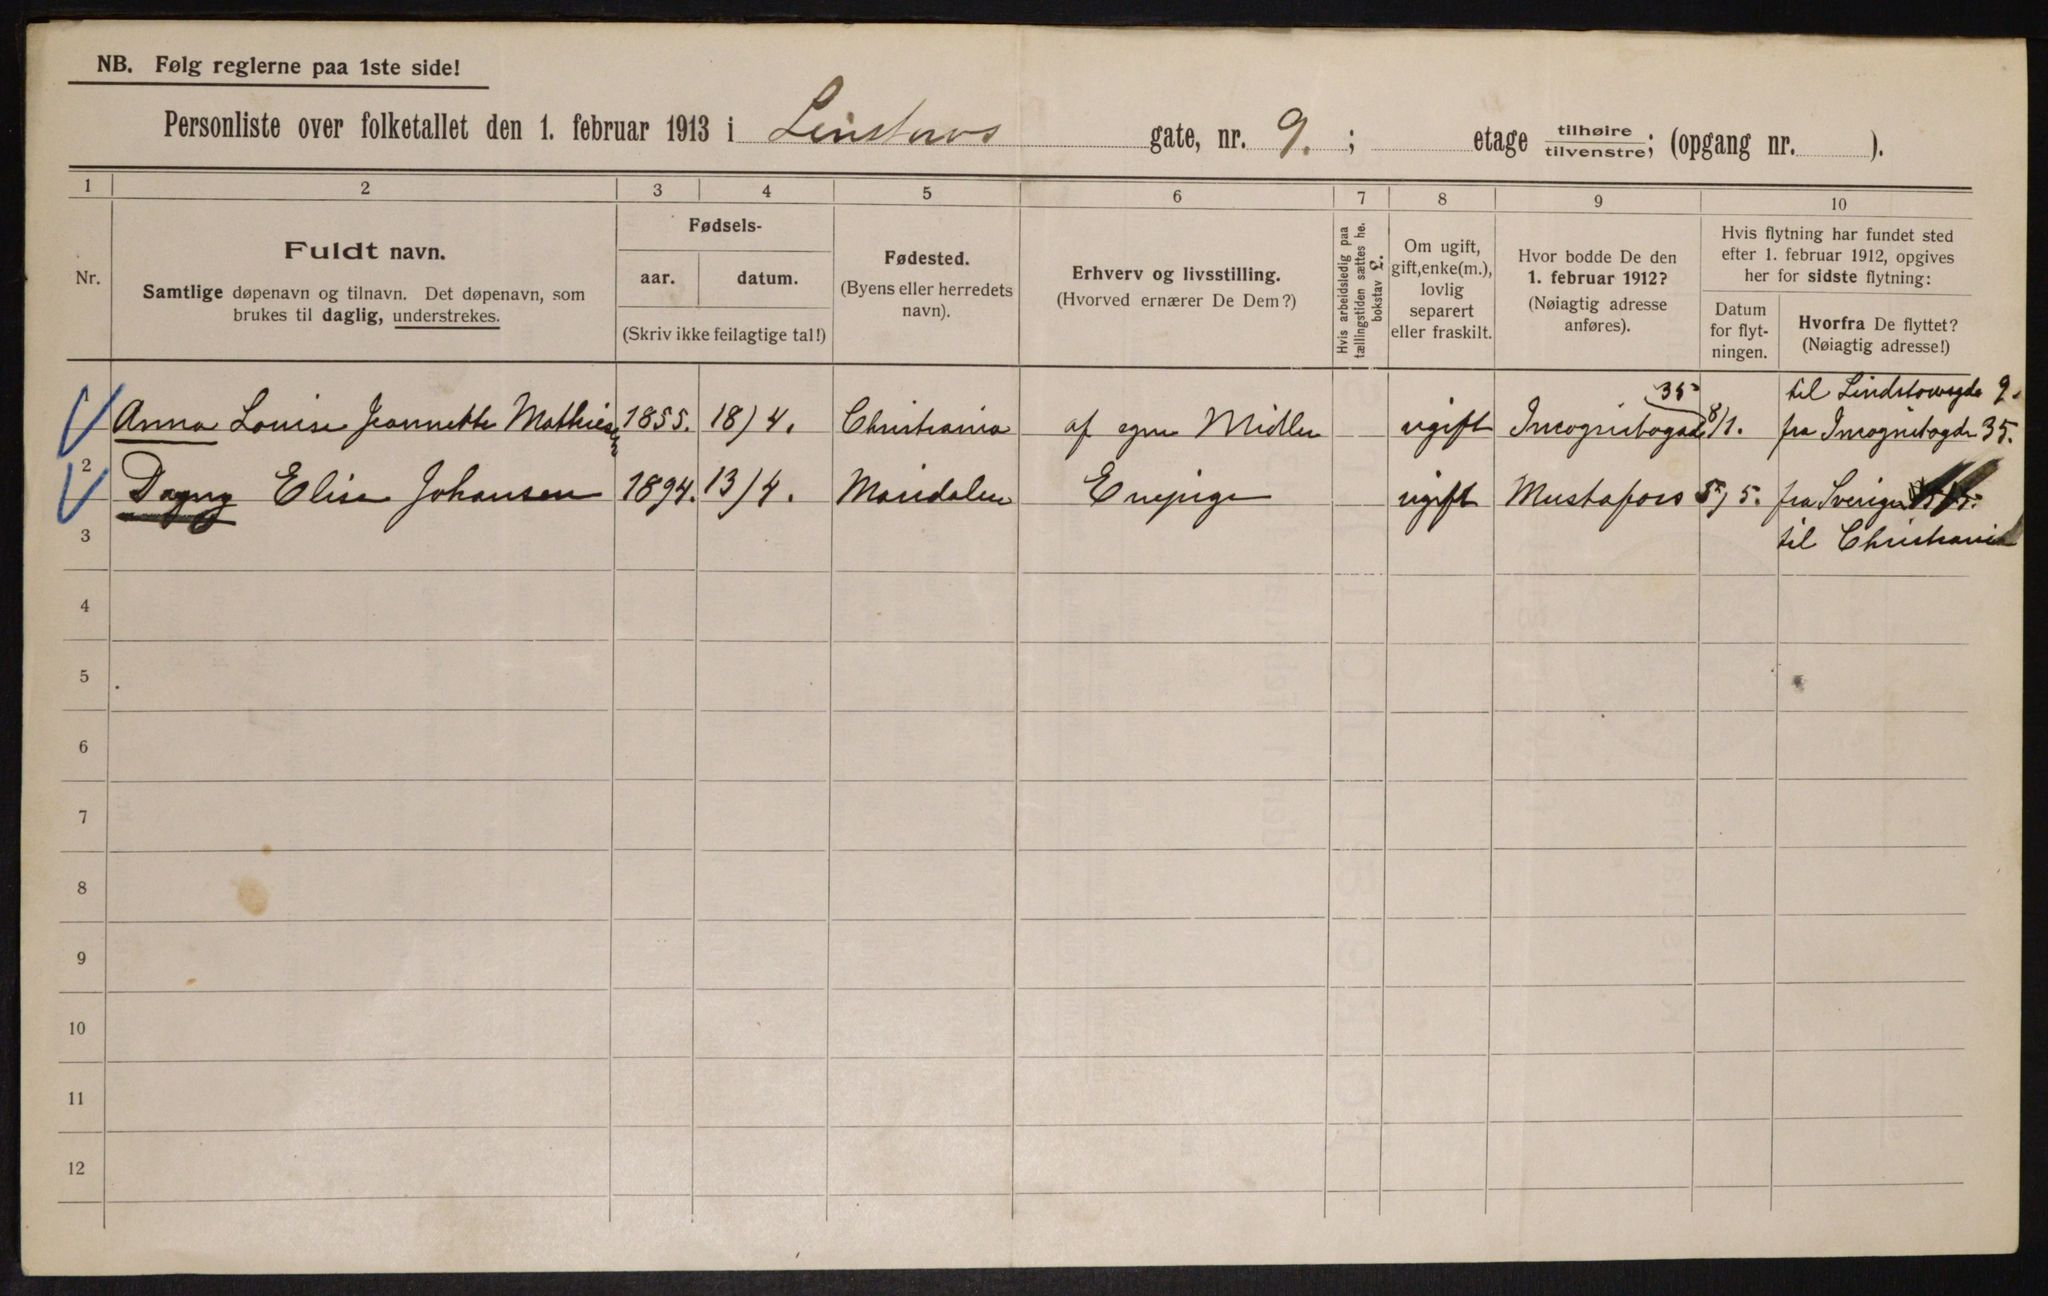 NB. Følg reglerne paa 1ste side!
Personliste over folketallet den 1. februar 1913 i Linstows gate, nr. 9. ; etage tilhøire tilvenstre; (opgang nr. ).
1 2 3 4 5 6 7 8 9 10
Nr.
Fuldt navn.
Samtlige døpenavn og tilnavn. Det døpenavn, som
brukes til daglig, understrekes.
Fødsels-
aar. datum.
(Skriv ikke feilagtige tal!)
Fødested.
(Byens eller herredets
navn).
Erhverv og livsstilling.
(Hvorved ernærer De Dem?)
Hvis arbeidsledig paa
tællingstiden sættes he.
bokstav l.
Om ugift,
gift, enke(m.),
lovlig
separert
eller fraskilt.
Hvor bodde De den
1. februar 1912?
(Nøiagtig adresse
anføres).
Hvis flytning har fundet sted
efter 1. februar 1912, opgives
her for sidste flytning:
Datum
for flyt-
ningen.
Hvorfra De flyttet?
(Nøiagtig adresse!)
35 til Lindstowsgde 9.
Anna Louise Jeannette Mathiesen 1855. 18/4. Christiania af egne Midler ugift Incognitogade 8/1. fra Incognitogde 35.
2 Dagny Elise Johansen 1894. 13/4. Maridalen Enepige ugift Mustafors 5/5. fra Sverige
3 til Christiania
4
5
6
7
8
9
10
11
12